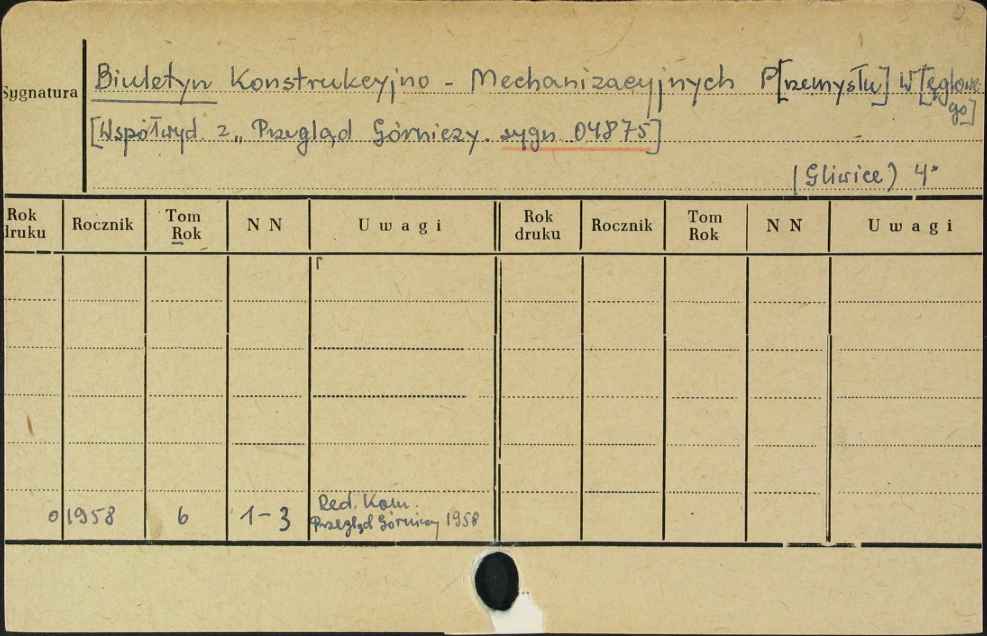 Sygnatura
Biuletyn Konstrukcyjno - Mechanizacyjnych P[rzemysłu] W[ęglowe-
go]
[Współwyd. z „Przegląd Górniczy. sygn. 04875]
(Gliwice) 4°
Rok druku Rocznik Tom Rok N N Uwagi Rok druku Rocznik Tom Rok N N Uwagi
Red. Kom.
0 1958 6 1-3 Przegląd Górniczy 1958